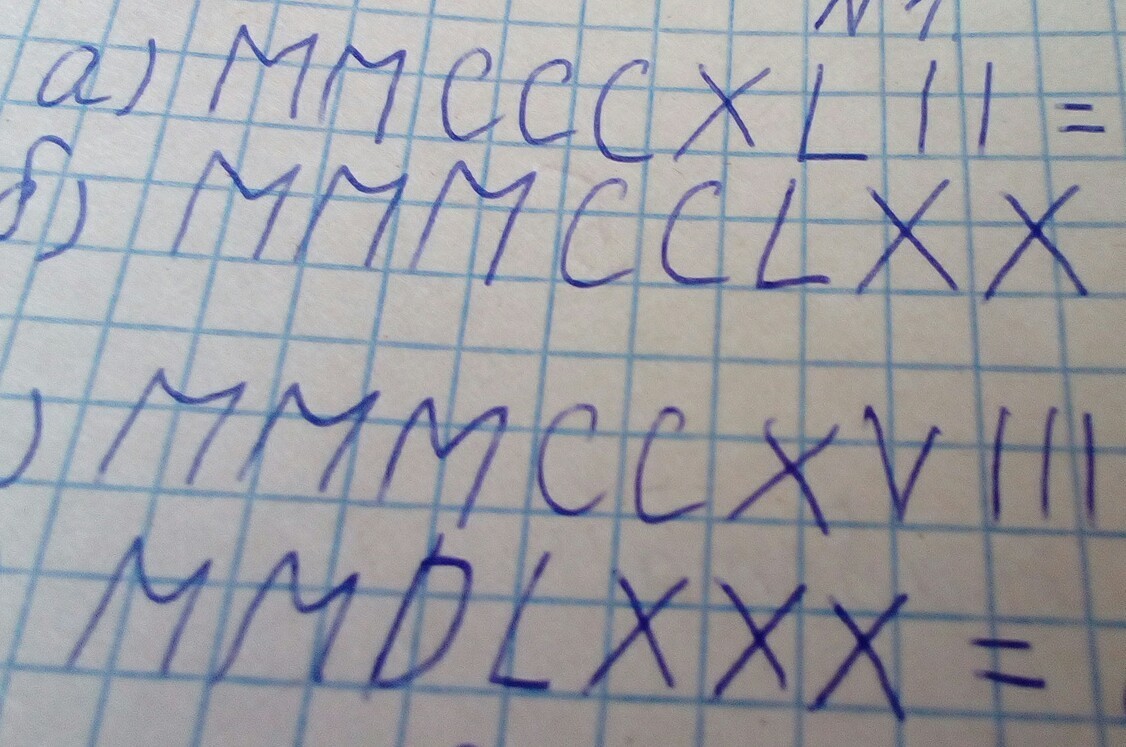 N 1.
а) MMCCCXLII =
б) MMMCCLXX
) MMMCCXVIII
MMDLXXX =